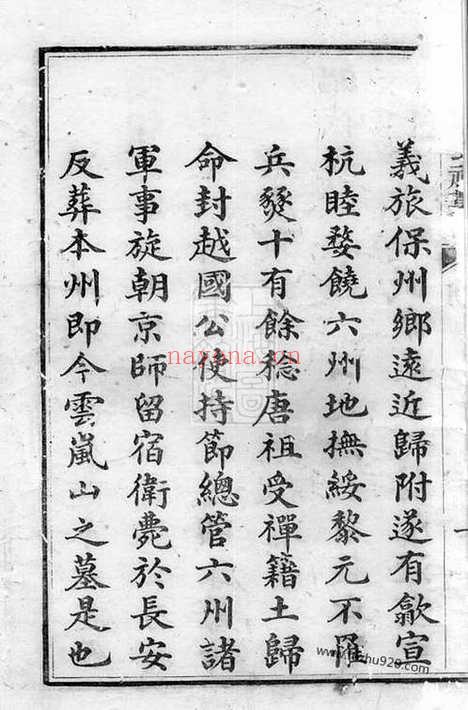 義旅保州鄉遠近歸附遂有歙宣
杭睦婺饒六州地撫綏黎元不罹
兵燹十有餘稔唐祖受禪籍土歸
命封越國公使持節總管六州諸
軍事旋朝京師留宿衛薨於長安
反葬本州即今雲嵐山之墓是也
naxana.cn